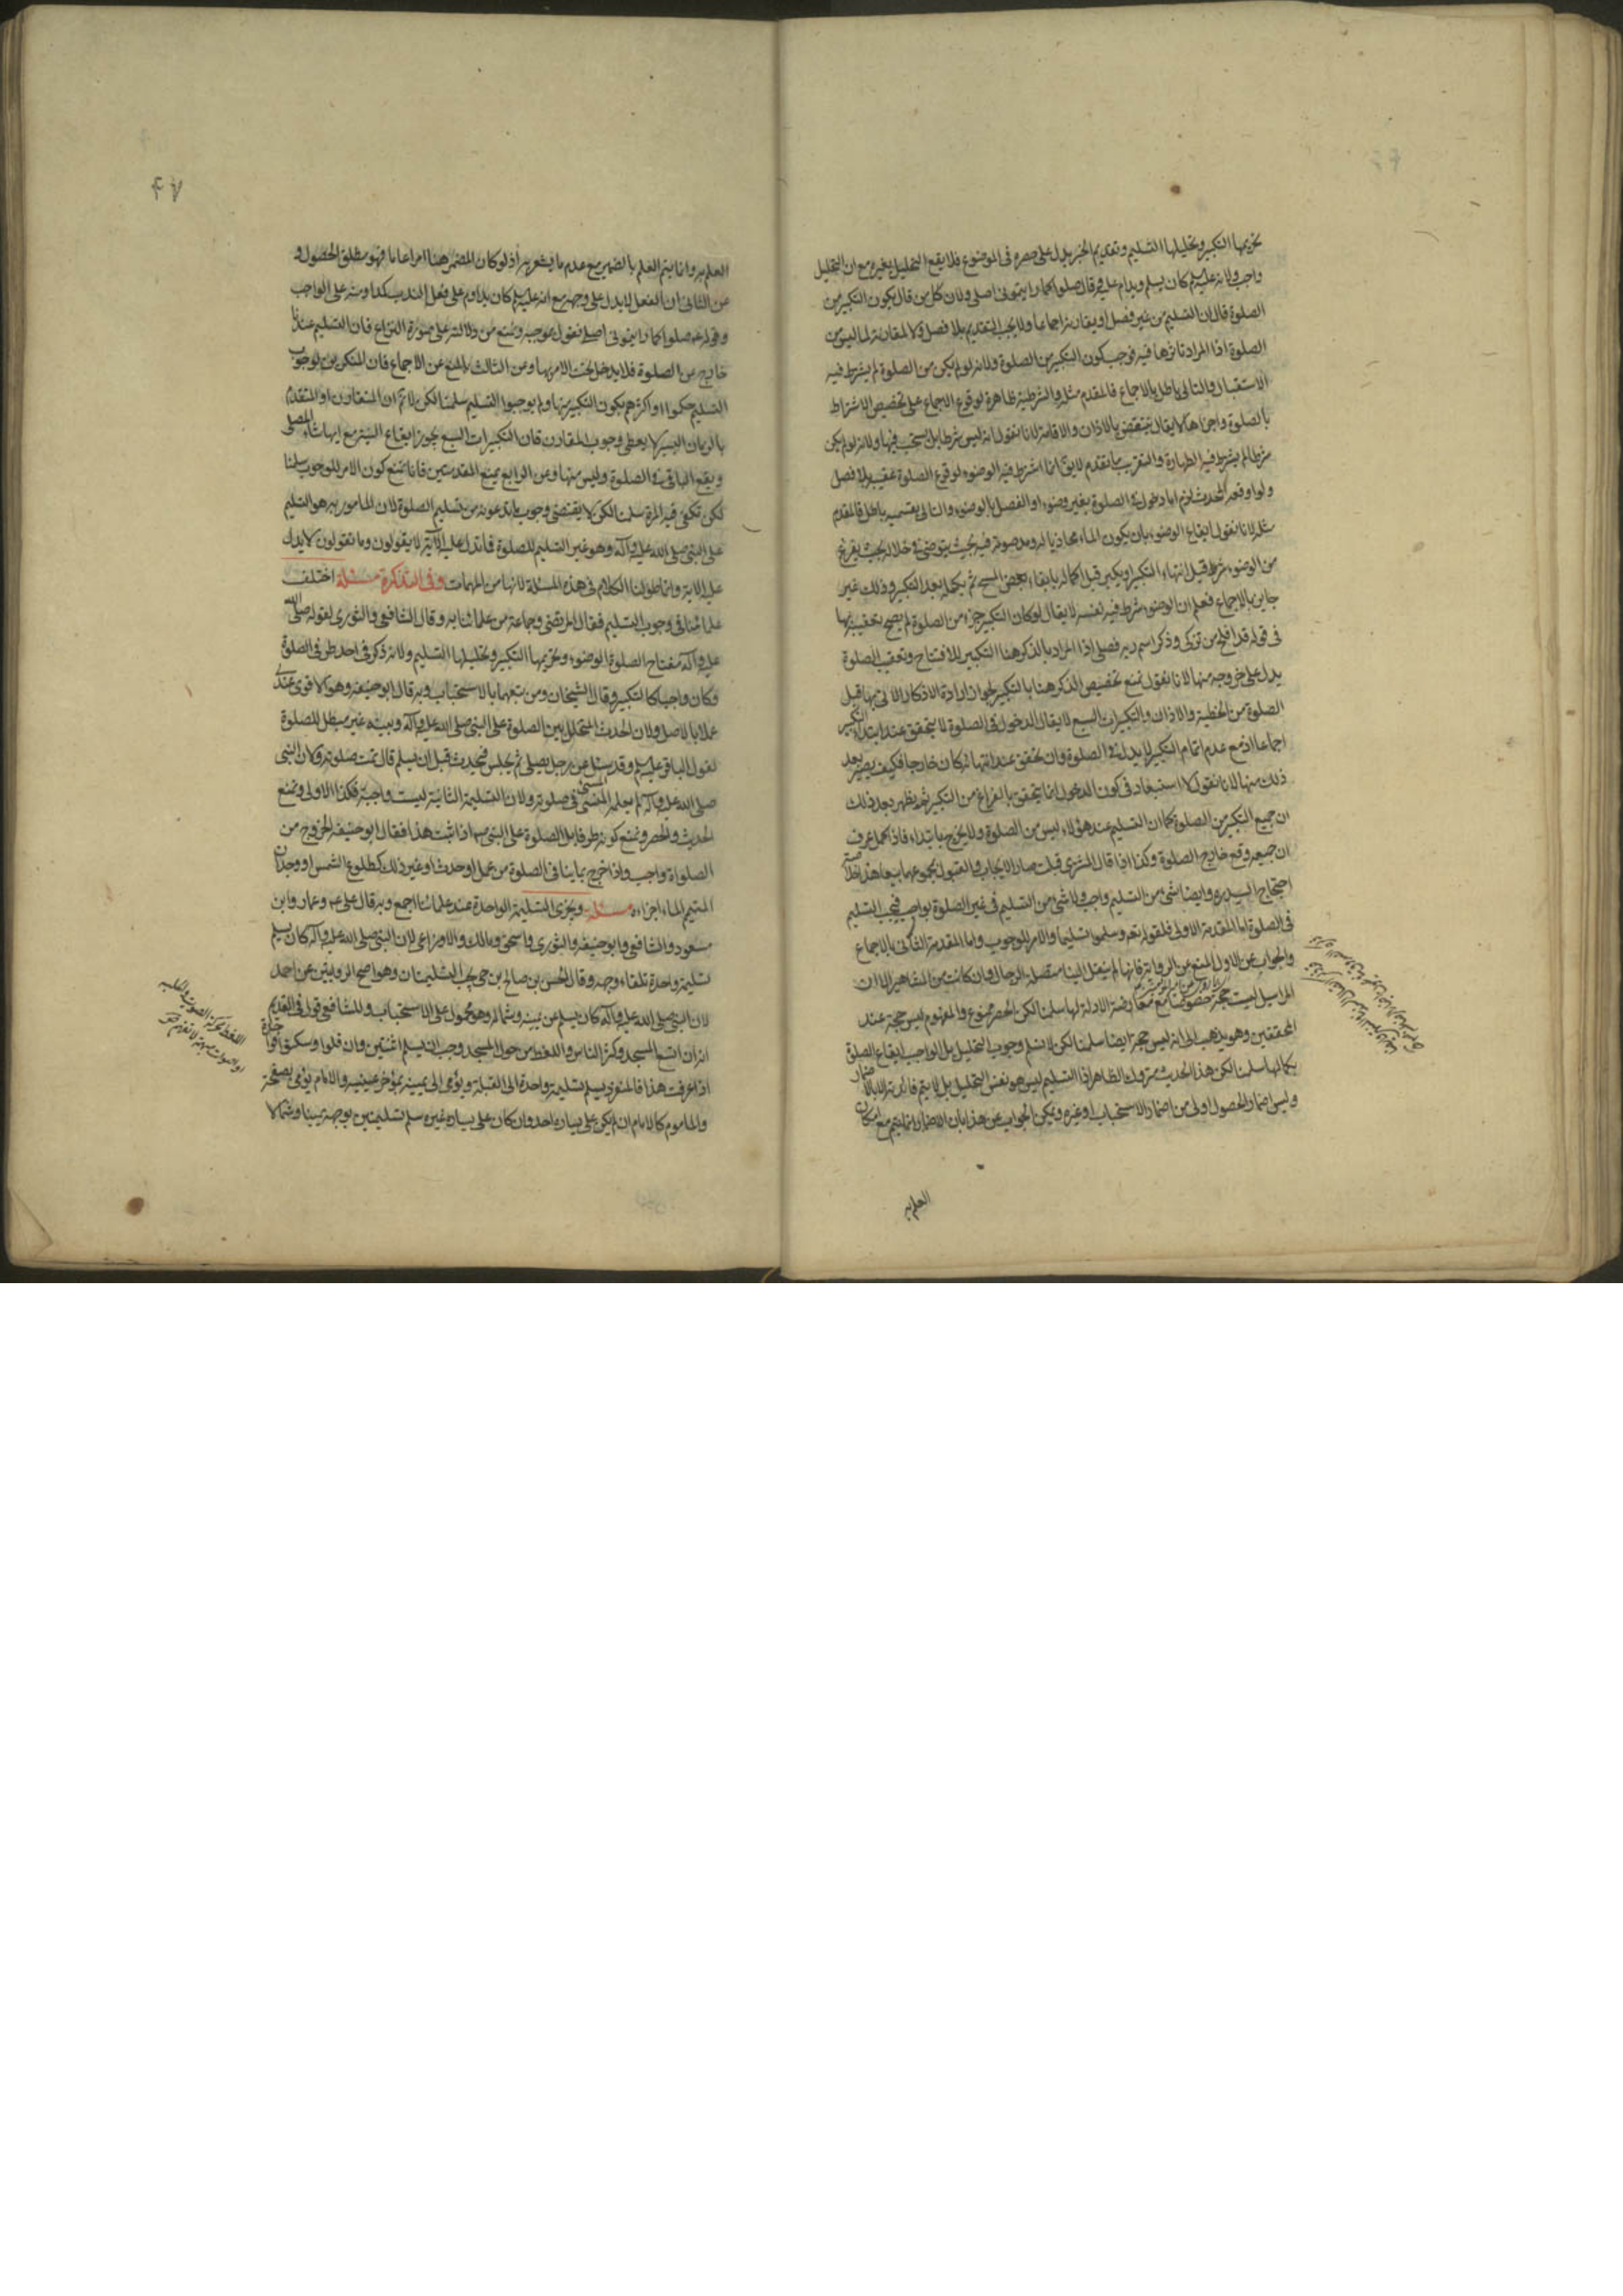 تحريمها التكبير وتحليلها التسليم وتقديم الخبر يدل على حصره فى الموضوع فلا يقع التحليل بغيره مع ان التحليل
واجب ولانه عليه السلم كان يسلم ويداوم عليه وقال صلوا كما رايتمونى اصلى ولان كل من قال بكون التكبير من
الصلوة قال ان التسليم من غير فصل او يقارنه اجماعا ولا يجب التقديم بلا فصل ولا المقارنة لما ليس من
الصلوة اذا المراد تاثرها فيه فوجب كون التكبير من الصلوة ولانه لو لم يكن من الصلوة لم يشرط فيه
الاستقبال والتالى باطل بالاجماع فالمقدم مثله والشرطية ظاهرة لوقوع الاجماع على تخصيص الاشتراط
بالصلوة واجزاءها لا يقال ينتقض بالاذان والاقامة لانا نقول انه ليس شرطا بل يستحب فيها ولانه لو لم يكن
شرطا لم يشرط فيه الطهارة والتقريب ما تقدم لا يق انما اشترط فيه الوضوء لوقوع الصلوة عقيبه بلا فصل
ولو اوقعه المحدث لزم اما دخوله فى الصلوة بغير وضوء او الفصل بالوضوء والتالى بقسميه باطل فالمقدم
مثله لانا نقول ايقاع الوضوء بان يكون الماء محاذيا له ومد صوته فيه بحيث يتوضى فى خلاله بحيث يفرغ
من الوضوء شرط قبل انتهاء التكبير او يكبر قبل اكماله بابقاء بعض المسح ثم يكمله بعد التكبير وذلك غير
جايز بالاجماع فعلم ان الوضوء شرط فيه لنفسه لا يقال لو كان التكبير جزء من الصلوة لم يصح تعقيبه بها
فى قوله قد افلح من تزكى وذكر اسم ربه فصلى اذا المراد بالذكر هنا التكبير للافتتاح وتعقب الصلوة
يدل على خروجه منها لانا نقول نمنع تخصيص الذكر هنا بالتكبير لجواز ارادة الاذكار الاتى بها قبل
الصلوة من الخطبة والاذان والتكبيرات السبع لا يقال الدخول فى الصلوة لا يتحقق عند ابتداء التكبير
اجماعا اذ مع عدم اتمام التكبير لا يدخل فى الصلوة وان تحقق عند انتهائه كان خارجا فكيف يصير بعد
ذلك منها لانا نقول لا استبعاد فى كون الدخول انما يتحقق بالفراغ من التكبير ثم يظهر بعد ذلك
ان جميع التكبير من الصلوة كما ان التسليم عند هؤلاء ليس من الصلوة ولا يخرج بابتداء فاذا كمل عرف
ان جميعه وقع خارج الصلوة وكذا اذا قال المشترى قبلت صار الايجاب والقبول بمجموعها بيعا هذا خلاصة
احتجاج السيد ره وايضا شئ من التسليم واجب ولا شئ من التسليم فى غير الصلوة بواجب فيجب التسليم
فى الصلوة اما المقدمة الاولى فلقوله تعه وسلموا تسليما والامر للوجوب واما المقدمة الثانى بالاجماع
والجواب عن الاول المنع عن الرواية فانها لم ينقل الينا متصلة الرجال وان كانت من المشاهير الا ان
المراسيل ليست حجة خصوصا مع معارضة الادلة لها سلمنا لكن الحصر ممنوع والمفهوم ليس حجة عند
المحققين وهو يذهب الى انه ليس حجة ايضا سلمنا لكن لا نسلم وجوب التحليل بل الواجب ايقاع الصلوة
بكمالها سلمنا لكن هذا الحديث متروك الظاهر اذا التسليم ليس هو نفس التحليل بل لا يتم فائدته الا باضمار
وليس اضمار الحصول اولى من اضمار الاستحباب او غيره ويمكن الجواب عن هذا بان الاضمار انما يتم مع امكان
العلم به
٤٧
العلم به وانما يتم العلم بالضمير مع عدم ما يشعر به اذ لو كان المضمر هنا امرا عاما فهو مطلق الحصول و
عن الثانى ان الفعل لا يدل على وجهه مع انه عليه السلم كان يداوم على فعل المندب كمداومته على الواجب
وقوله عه صلوا كما رايتمونى اصلى نقول بموجبه ونمنع من دلالته على صورة النزاع فان التسليم عندنا
خارج عن الصلوة فلا يدخل تحت الامر بها وعن الثالث بالمنع عن الاجماع فان المنكرين لوجوب
التسليم حكموا او اكثرهم بكون التكبير منها ولم يوجبوا التسليم سلمنا لكن لا نم ان المتقارن او المتقدم
بالزمان اليسير لا يعطى وجوب المقارن فان التكبيرات السبع يجوز ايقاع النية مع ايها شاء المصلى
ويقع الباقى فى الصلوة وليس منها وعن الرابع بمنع المقدمتين فانا نمنع كون الامر للوجوب سلمنا
لكن تكفى فيه المرة سلمنا لكن لا يقتضى وجوب ما يدعونه من تسليم الصلوة لان المامور به هو التسليم
على النبى صلى الله عليه وآله وهو غير التسليم للصلوة فما تدل عليه الآية لا يقولون وما تقولون لا يدل
عليه الاية وانما طولنا الكلام فى هذه المسئلة لانها من المهمات وفى التذكرة مسئلة اختلف
علمائنا فى وجوب التسليم فقال المرتضى وجماعة من علمائنا به وقال الشافعى والثورى لقوله صلى الله
عليه وآله مفتاح الصلوة الوضوء وتحريمها التكبير وتحليلها التسليم ولانه ذكر فى احد طرفى الصلوة
فكان واجبا كالتكبير وقال الشيخان ومن تبعهما بالاستحباب وبه قال ابو حنيفه وهو الاقوى عندى
عملا بالاصل ولان الحدث المتخلل بين الصلوة على النبى صلى الله عليه وآله وبينه غير مبطل للصلوة
لقول الباقر عليه السلم وقد سئل عن رجل يصلى ثم يجلس فيحدث قبل ان يسلم قال تمت صلوته ولان النبى
صلى الله عليه وآله لم يعلمه المسئ فى صلوته ولان التسليمة الثانية ليست واجبة فكذا الاولى ونمنع
الحديث والحصر ونمنع كونه طرفا بل الصلوة على النبى اذا ثبت هذا فقال ابو حنيفه الخروج من
الصلواة واجب واذا خرج بما ينافى الصلوة من عمل او حدث او غير ذلك كطلوع الشمس او وجدان
المتيمم الماء اجزاءه مسئلة ويجزى التسليمة الواحدة عند علمائنا اجمع وبه قال على عه وعمار وابن
مسعود والشافعى وابو حنيفه والثورى واسحق ومالك والاوزاعى لان النبى صلى الله عليه وآله كان يسلم
تسليمة واحدة تلقاء وجهه وقال الحسن بن صالح بن حى يجب التسليمتان وهو اصح الروايتين عن احمد
لان النبى صلى الله عليه وآله كان يسلم عن يمينه وشماله وهو محمول على الاستحباب وللشافعى قول فى القديم
انه ان اتسع المسجد وكثر الناس واللغط من حول المسجد وجب ان يسلم اثنتين وان قلوا وسكتوا فواحدة
اذا عرفت هذا فالمنفرد يسلم تسليمة واحدة الى القبلة ويؤمى الى يمينه بمؤخر عينيه والامام يؤمى بصفحة
والماموم كالامام ان لم يكن على يساره احد وان كان على يساره غيره سلم تسليمتين بوجهه يمينا وشمالا